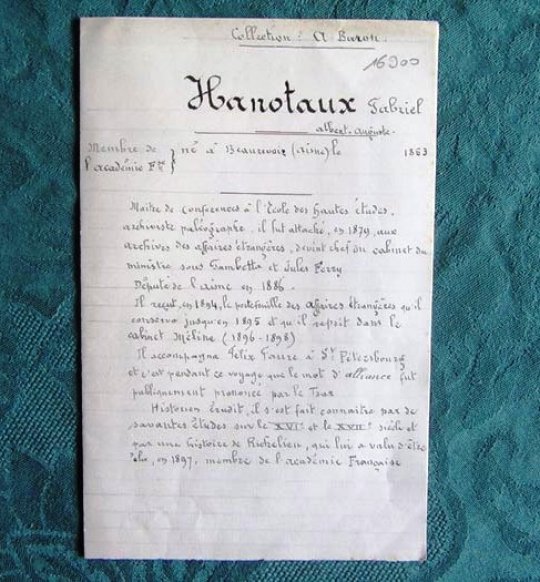 Collection : A Buron.
16900
Hanotaux Gabriel
albert-auguste.
Membre de né à Beaurevoir (aisne) le 1863
l'académie Fse
Maître de conférences à l'École des hautes études,
archiviste paléographe, il fut attaché, en 1879, aux
archives des affaires étrangères, devint chef du cabinet du
ministre sous Gambetta et Jules Ferry.
Député de l'aisne en 1886.
Il reçut, en 1894, le portefeuille des affaires étrangères qu'il
conserva jusqu'en 1895 et qu'il reprit dans le
cabinet Méline (1896-1898)
Il accompagna Félix Faure à St Pétersbourg
et c'est pendant ce voyage que le mot d'alliance fut
publiquement prononcé par le Tsar
Historien érudit, il s'est fait connaître par de
savantes études sur le XVIe et le XVIIe siècle et
par une histoire de Richelieu, qui lui a valu d'être
élu, en 1897, membre de l'académie Française